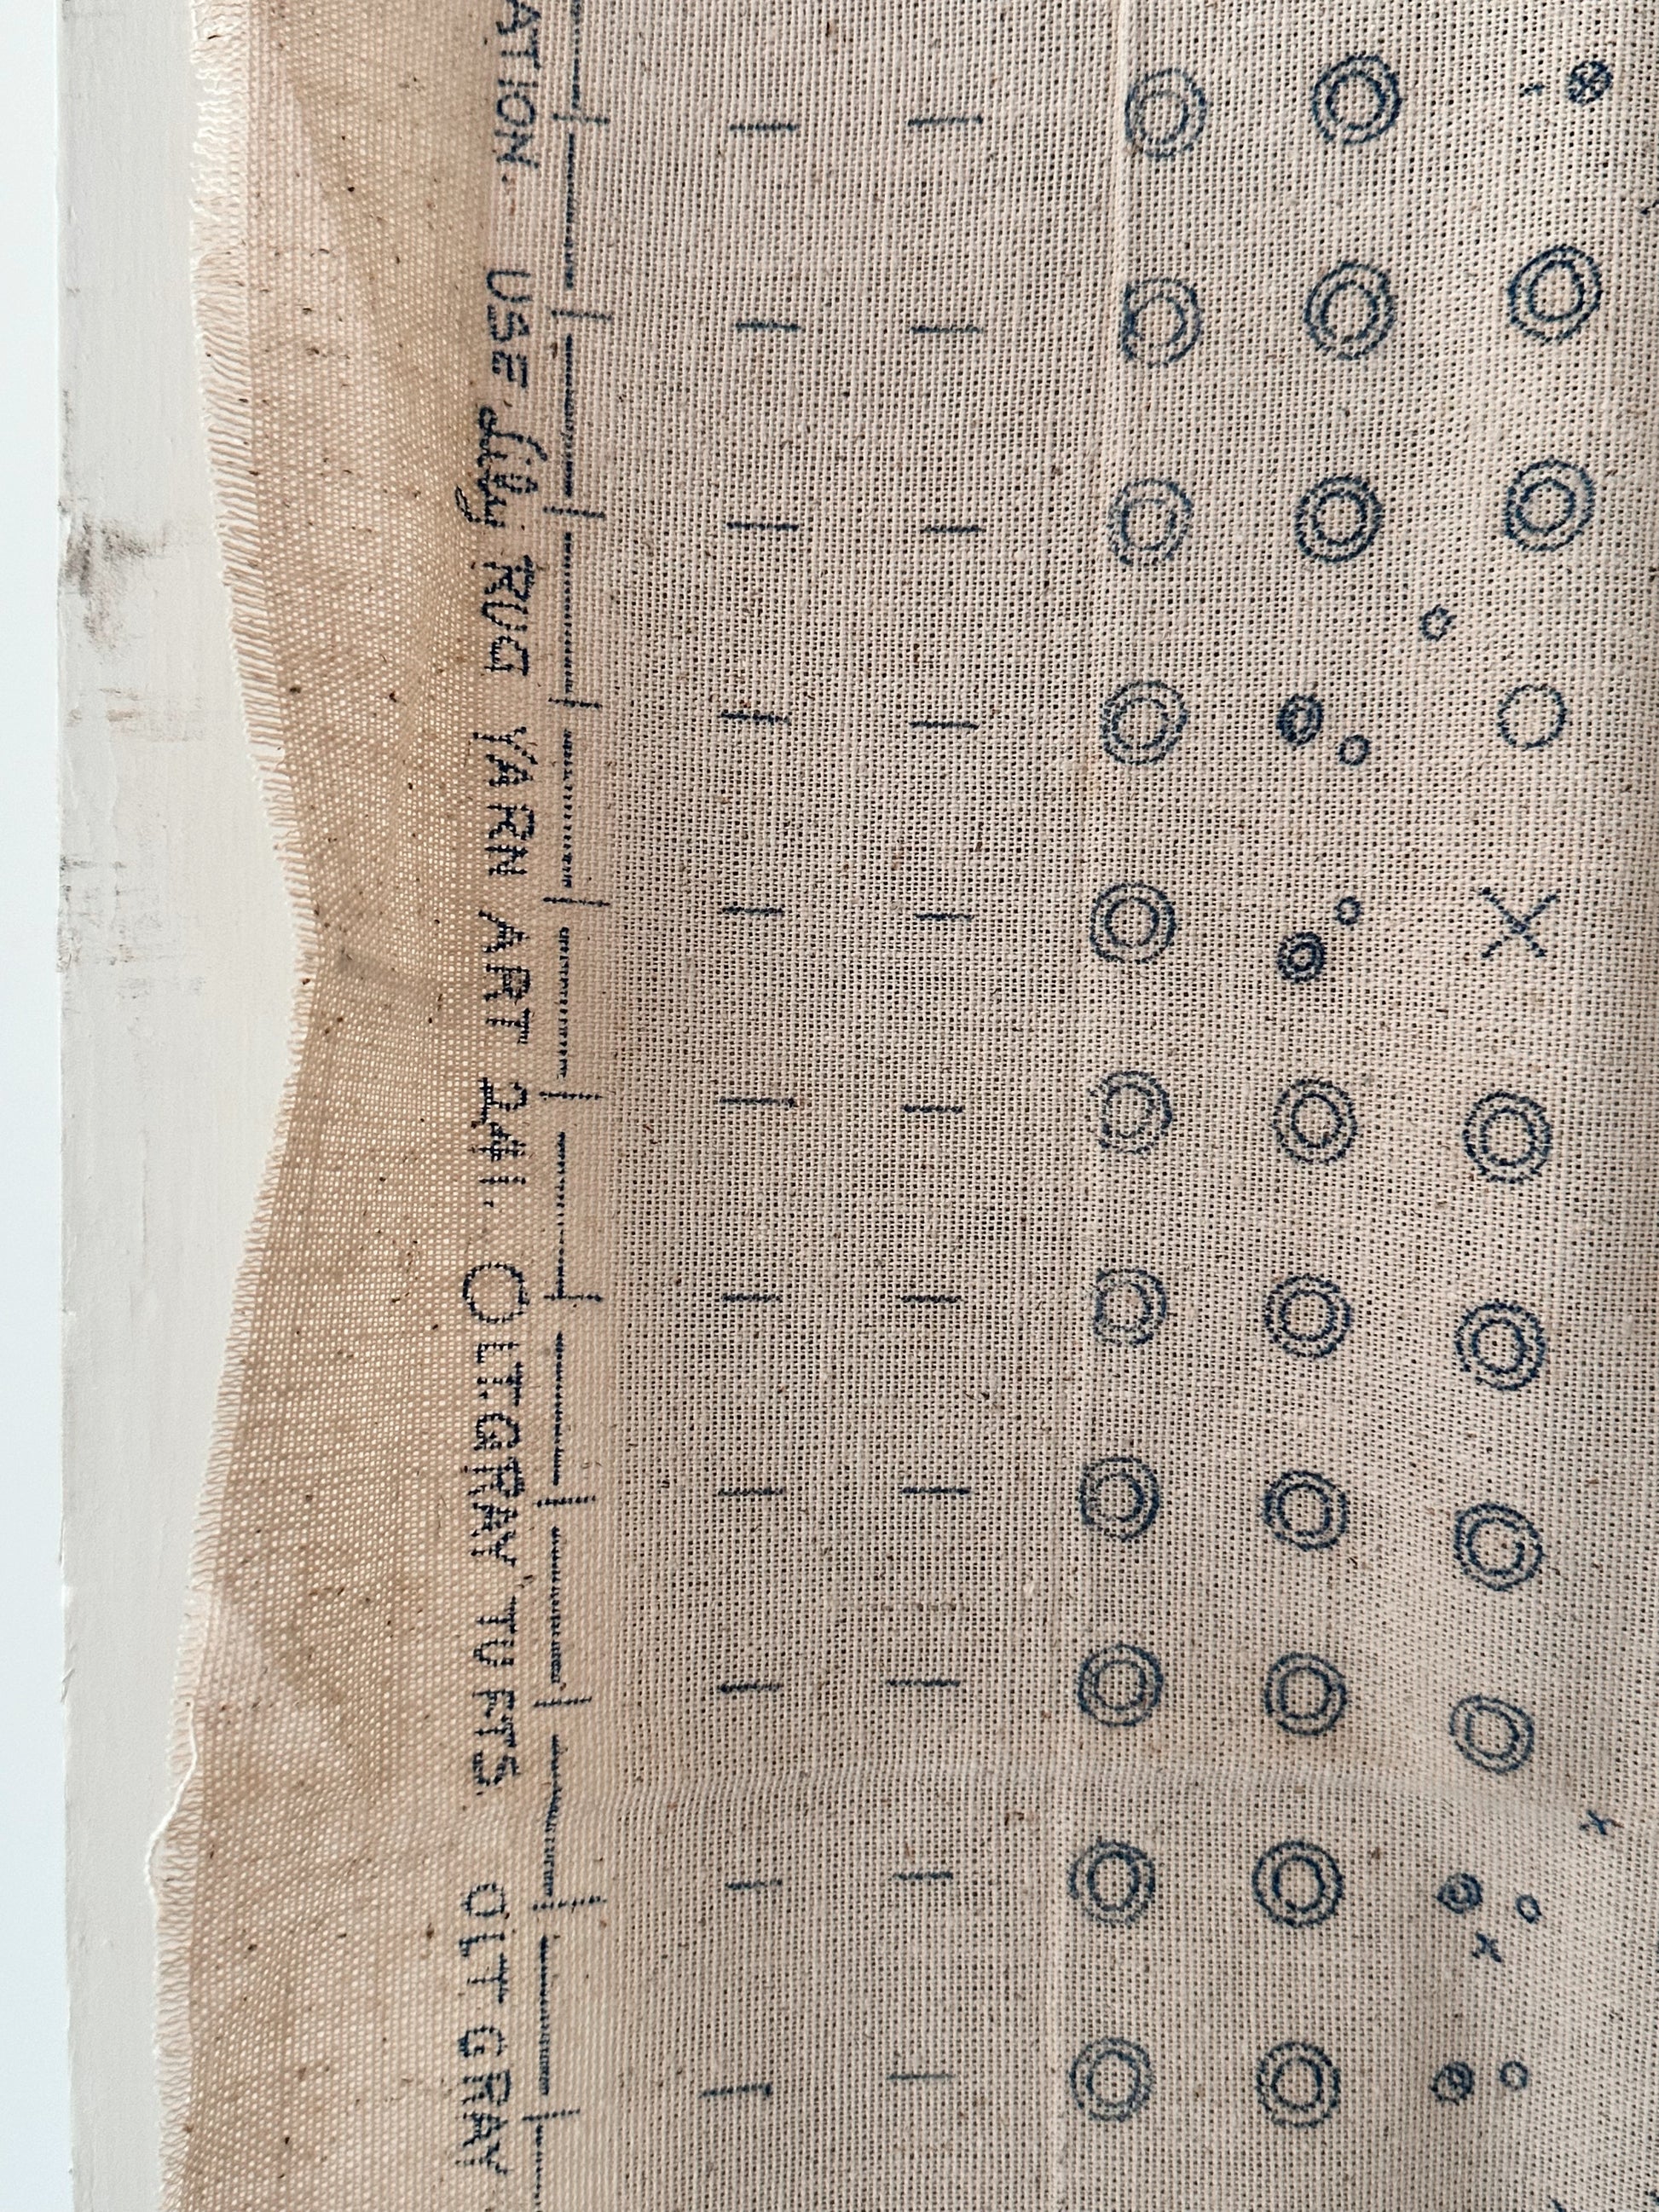 ATION. USE Lily RUG YARN ART 241. O LT. GRAY TUFTS O LT GRAY